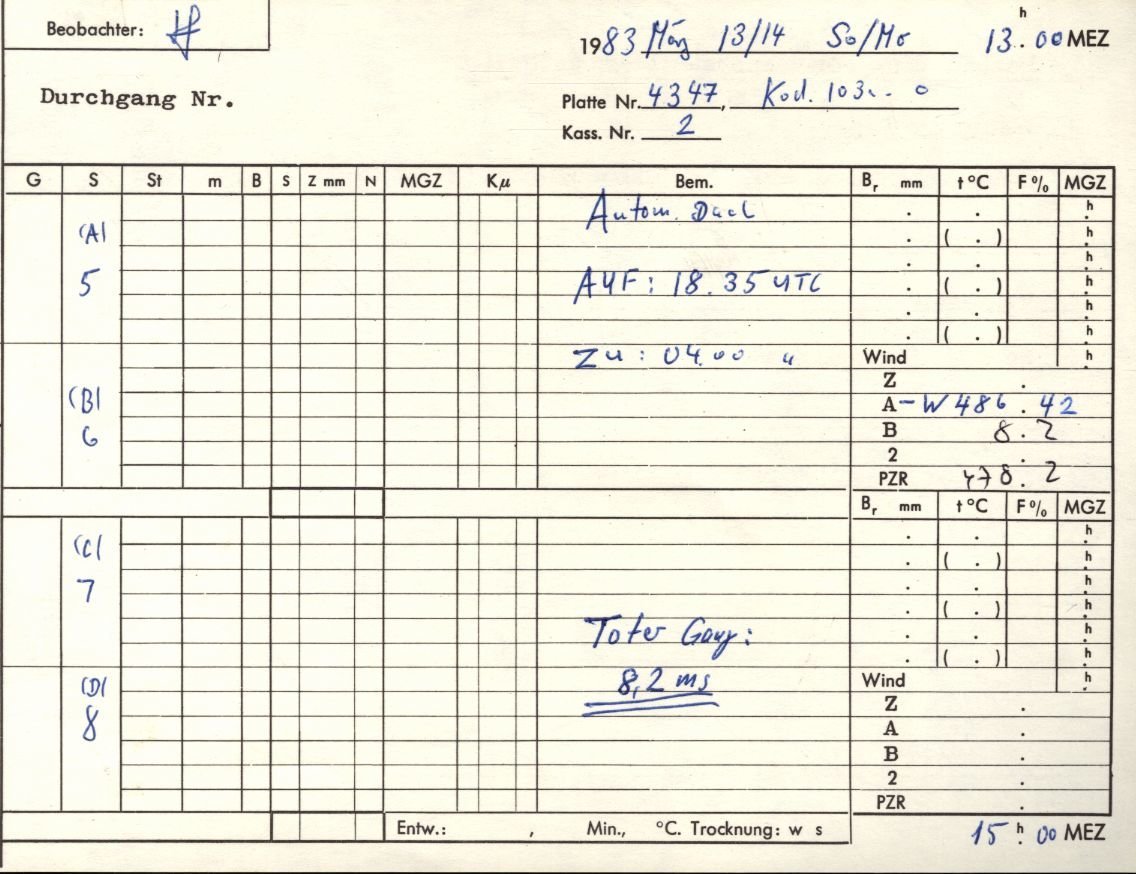 Beobachter:
1983 März 13/14 So/Mo 13.h 00 MEZ
Durchgang Nr.
Platte Nr. 4347, Kod. 103a - O
Kass. Nr. 2
G S St m B S Z mm N MGZ Kµ Bem. Br mm t °C F % MGZ
Autom. Dach . . .h
(A) . ( . ) .h
. . .h
5 AUF: 18.35 UTC . ( . ) .h
. . .h
. ( . ) .h
Zu: 04.00 " Wind .h
Z .
(B) A - W 486.42
6 B 8.2
2 .
PZR 478.2
Br mm t °C F % MGZ
. . .h
(C) . ( . ) .h
7 . . .h
. ( . ) .h
Toter Gang: . . .h
. ( . ) .h
(D) 8,2 ms Wind .h
Z .
8 A .
B .
2 .
PZR .
Entw.: , Min., °C. Trocknung: w s 15.h 00 MEZ